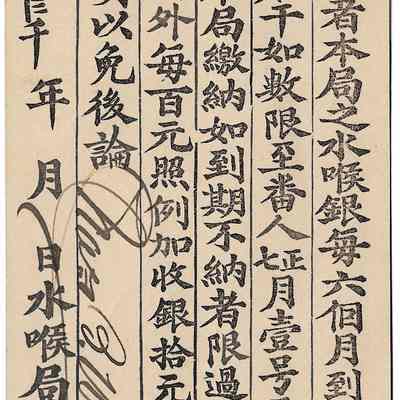 者本局之水喉銀每六個月到
干如數限至番人正七月壹号
本局繳納如到期不納者限過
外每百元照例加收銀拾元
以免後論
千 年 月 日水喉局